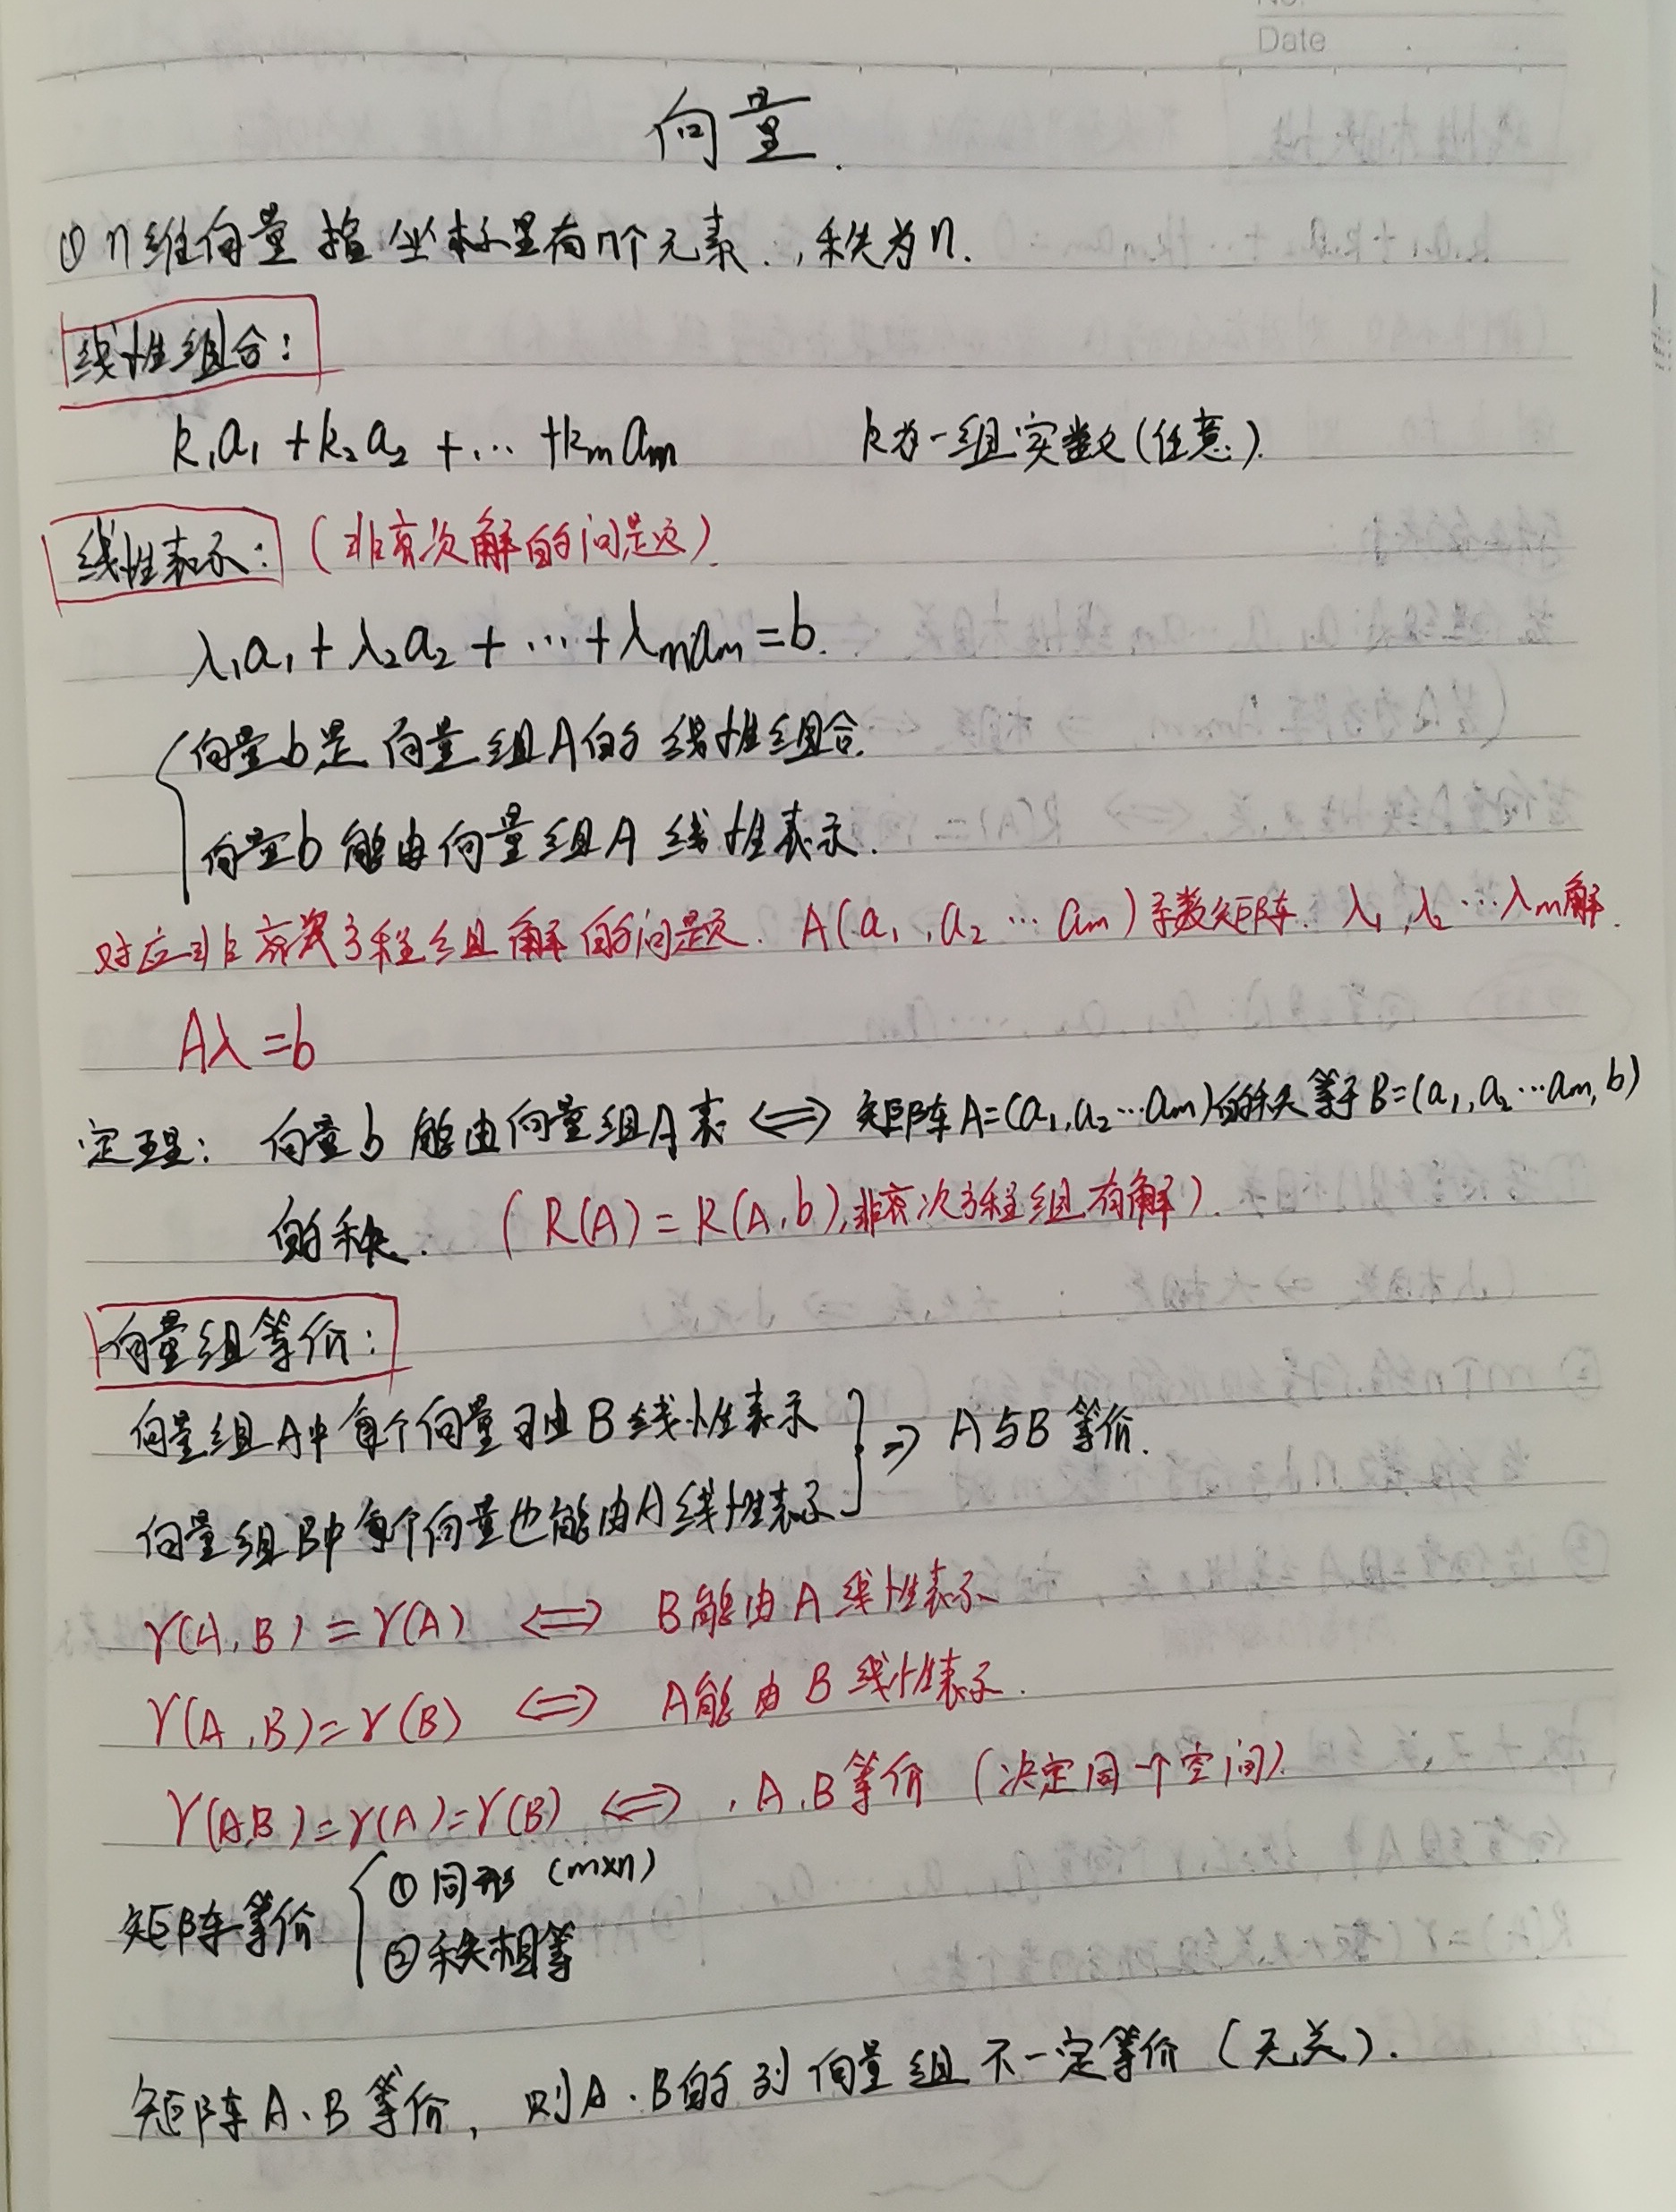 Date
向量.
① n维向量 指 坐标里有n个元素.,秩为n.
线性组合:
k₁a₁+k₂a₂+…+kₘaₘ k为一组实数(任意).
线性表示: (非齐次解的问题).
λ₁a₁+λ₂a₂+…+λₘaₘ=b.
向量b是 向量组A的 线性组合.
向量b 能由向量组A 线性表示.
对应非齐次方程组解的问题. A(a₁,a₂…aₘ)系数矩阵. λ₁,λ₂…λₘ解.
Aλ=b
定理: 向量b 能由向量组A表 ⟺ 矩阵A=(a₁,a₂…aₘ)的秩等于B=(a₁,a₂…aₘ,b)
的秩. (R(A)=R(A,b),非齐次方程组有解).
向量组等价:
向量组A中每个向量可由B线性表示
向量组B中每个向量也能由A线性表示 } ⇒ A与B等价.
r(A,B)=r(A) ⟺ B能由A线性表示
r(A,B)=r(B) ⟺ A能由B线性表示.
r(A,B)=r(A)=r(B) ⟺ A,B等价 (决定同一个空间).
矩阵等价 { ①同形 (m×n)
②秩相等
矩阵A、B等价, 则A、B的列向量组不一定等价(无关).